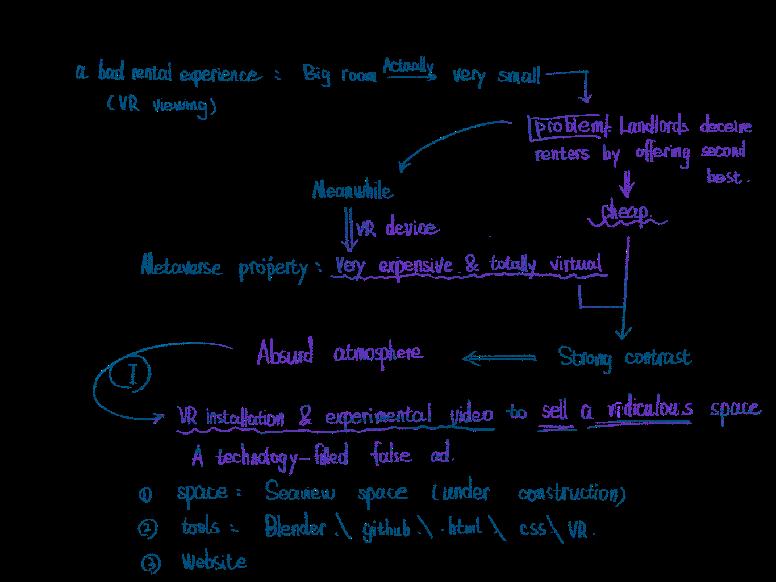 a bad rental experience : Big room Actually very small
(VR viewing)
problem : Landlords deceive
renters by offering second
best.
Meanwhile
cheap.
VR device
Metaverse property : Very expensive & totally virtual
Absurd atmosphere
Strong contrast
I
VR installation & experimental video to sell a ridiculous space
A technology-filled false ad.
① space : Seaview space (under construction)
② tools : Blender \ github \ .html \ css \ VR.
③ Website